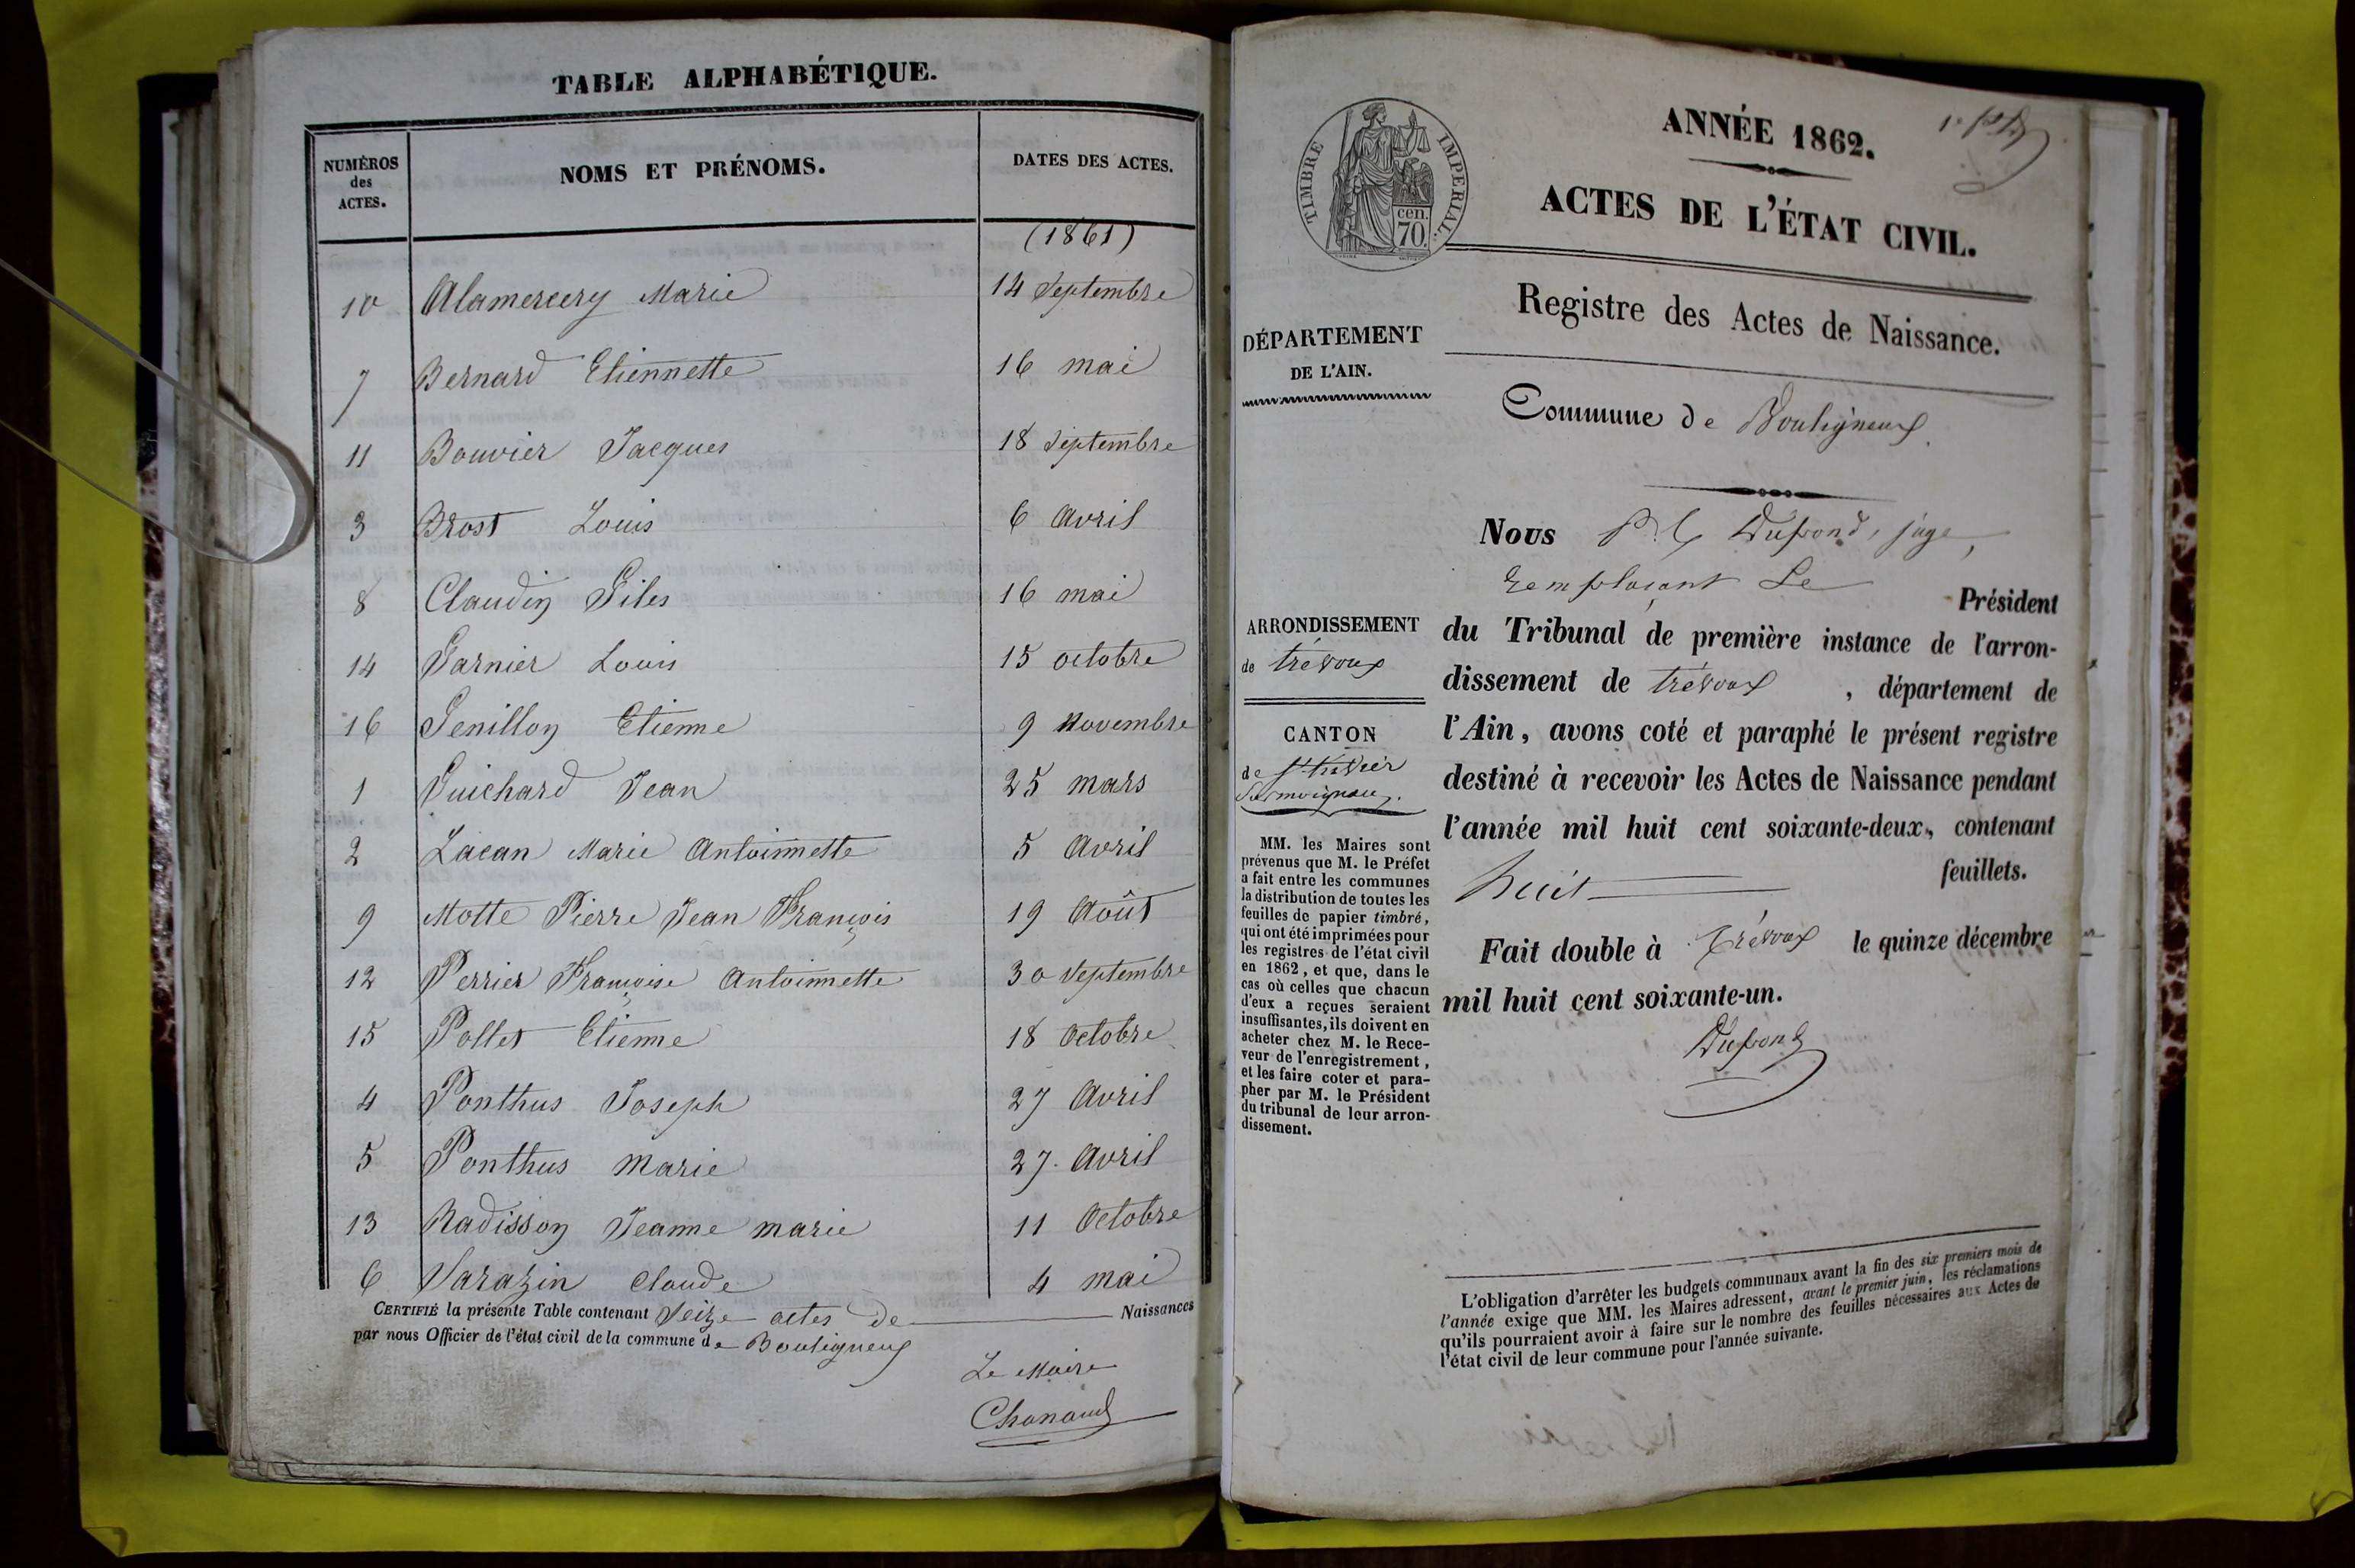 TABLE ALPHABÉTIQUE.
NUMÉROS des ACTES. NOMS ET PRÉNOMS. DATES DES ACTES.
(1861)
10 Alamercery Marie 14 Septembre
7 Bernard Etiennette 16 mai
11 Bouvier Jacques 18 Septembre
3 Brost Louis 6 Avril
8 Claudin Giles 16 mai
14 Garnier Louis 15 octobre
16 Genillon Etienne 9 Novembre
1 Guichard Jean 25 mars
2 Lacan Marie Antoinnette 5 Avril
9 Motte Pierre Jean François 19 Août
12 Perrier Françoise Antoinnette 30 Septembre
15 Pollet Etienne 18 Octobre
4 Ponthus Joseph 27 Avril
5 Ponthus Marie 27. Avril
13 Radisson Jeanne marie 11 Octobre
6 Sarazin Claude 4 mai
CERTIFIÉ la présente Table contenant Seize actes de Naissances
par nous Officier de l'état civil de la commune de Bouligneux
Le Maire
Chanaud
TIMBRE IMPERIAL.
cen.
70.
ANNÉE 1862.
ACTES DE L'ÉTAT CIVIL.
Registre des Actes de Naissance.
Commune de Bouligneux.
DÉPARTEMENT
DE L'AIN.
ARRONDISSEMENT
de trévoux
CANTON
de St trivier
MM. les Maires sont
prévenus que M. le Préfet
a fait entre les communes
la distribution de toutes les
feuilles de papier timbré,
qui ont été imprimées pour
les registres de l'état civil
en 1862, et que, dans le
cas où celles que chacun
d'eux a reçues seraient
insuffisantes, ils doivent en
acheter chez M. le Rece-
veur de l'enregistrement,
et les faire coter et para-
pher par M. le Président
du tribunal de leur arron-
dissement.
Nous Dupond, juge,
remplaçant Le Président
du Tribunal de première instance de l'arron-
dissement de trévoux, département de
l'Ain, avons coté et paraphé le présent registre
destiné à recevoir les Actes de Naissance pendant
l'année mil huit cent soixante-deux, contenant
huit feuillets.
Fait double à Trévoux le quinze décembre
mil huit cent soixante-un.
Dupond
L'obligation d'arrêter les budgets communaux avant la fin des six premiers mois de
l'année exige que MM. les Maires adressent, avant le premier juin, les réclamations
qu'ils pourraient avoir à faire sur le nombre des feuilles nécessaires aux Actes de
l'état civil de leur commune pour l'année suivante.